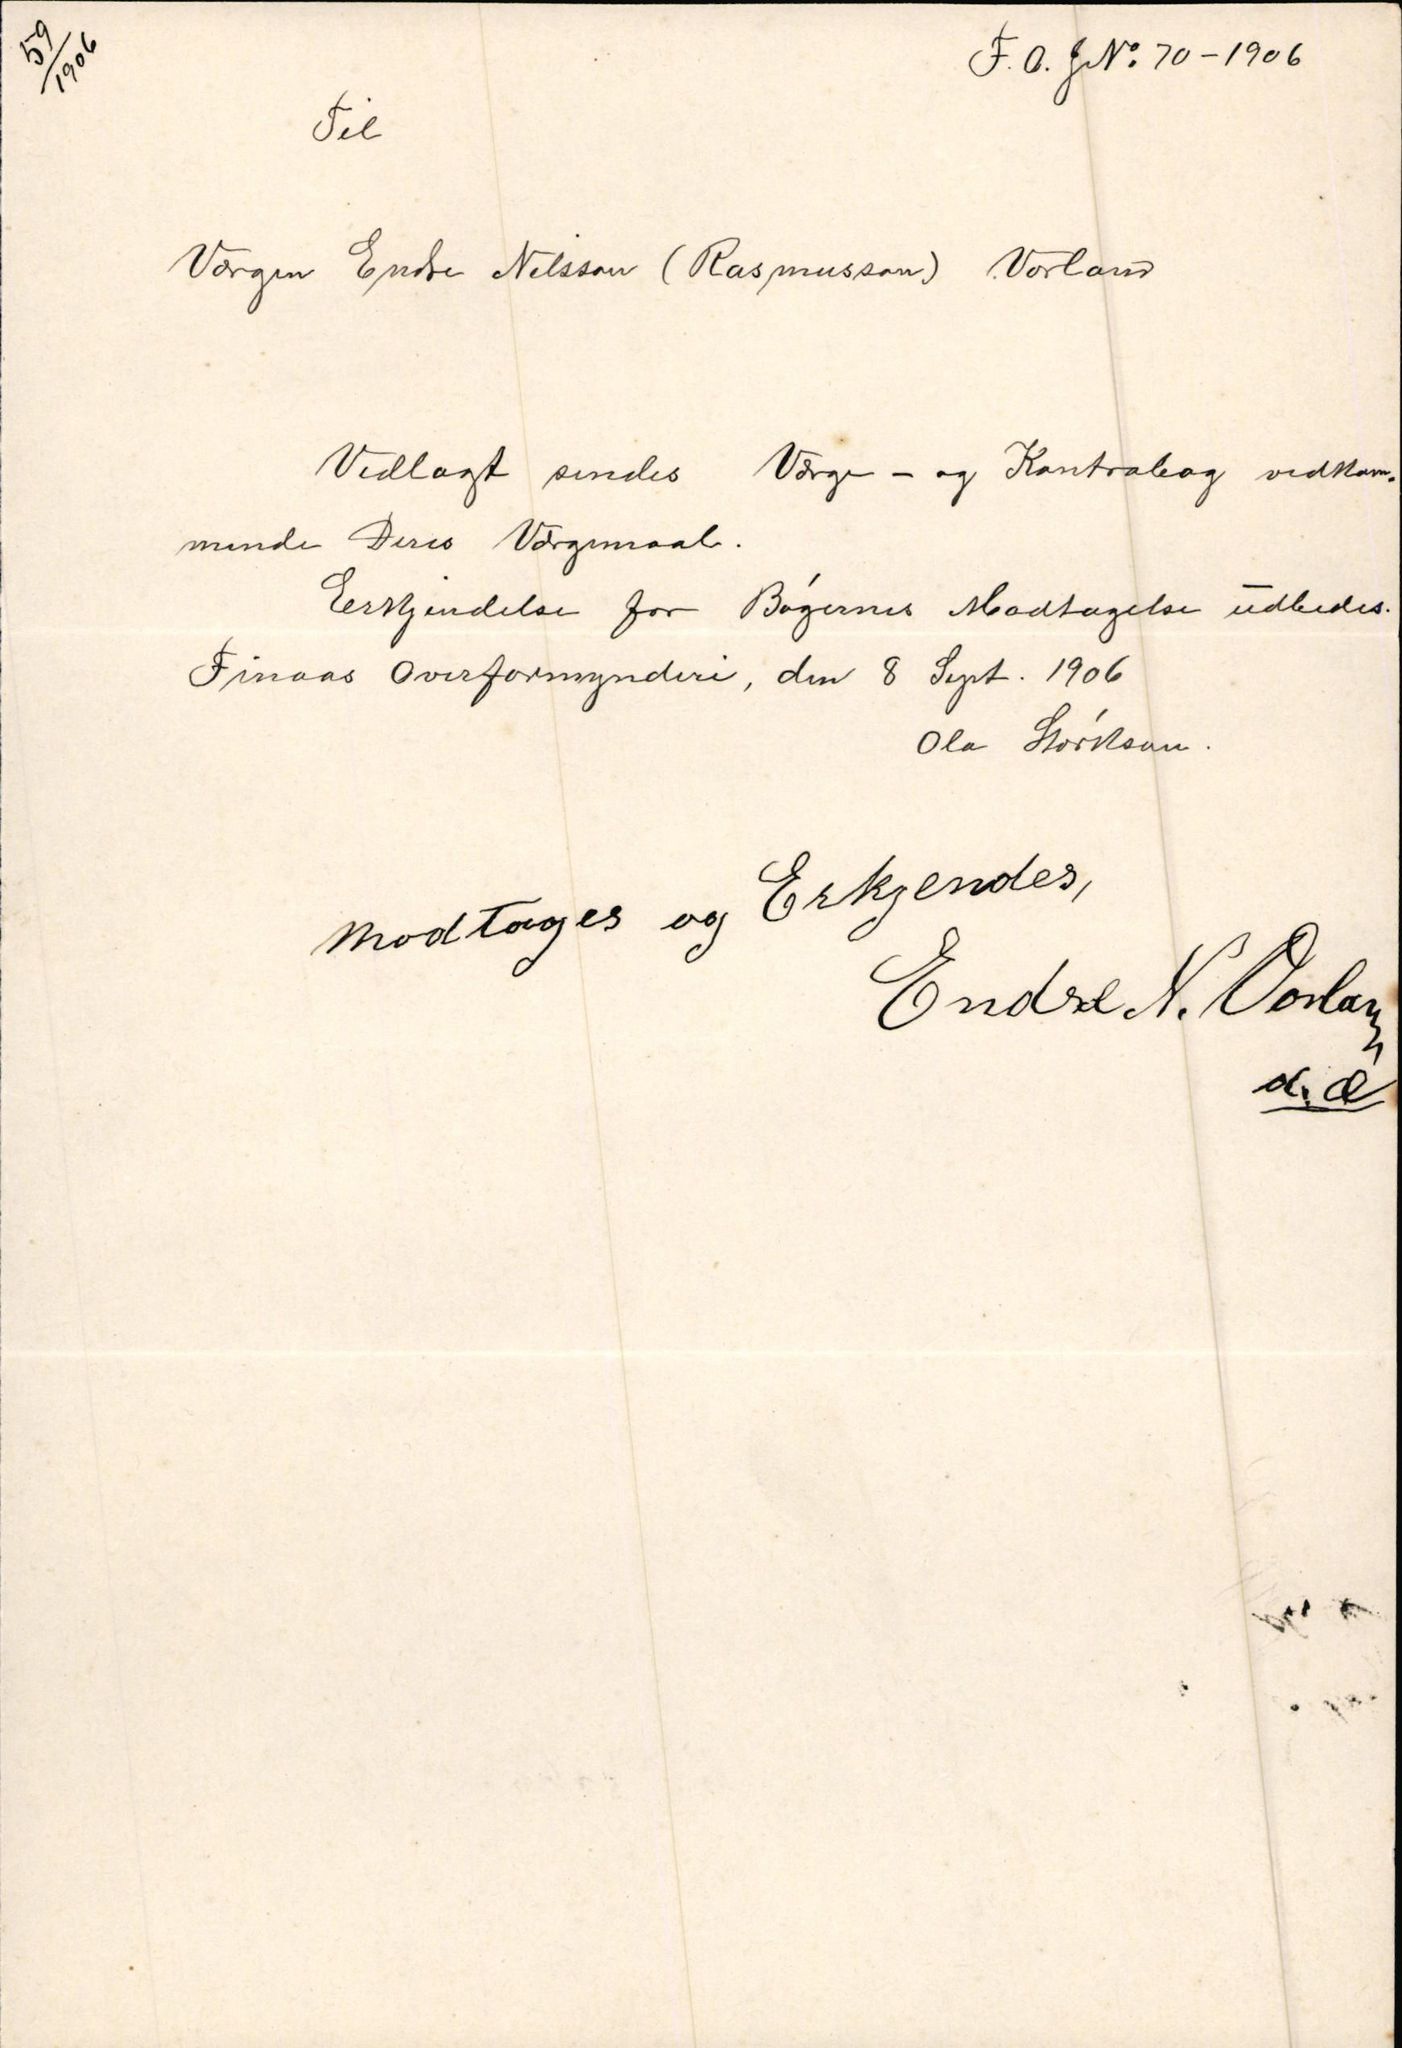 59/1906
F. O. J No. 70 - 1906
Til
Værgen Endre Nilsson (Rasmusson) Vorland
Vedlagt sendes Værge - og Kontrabog vedkom-
mende Deres Værgemaal.
Eerkjendelse for Bógernes Modtagelse udbedes.
Finaas Overformynderi, den 8 Sept. 1906
Ola Størkson.
modtages og Erkjendes,
Endre N. Vorland